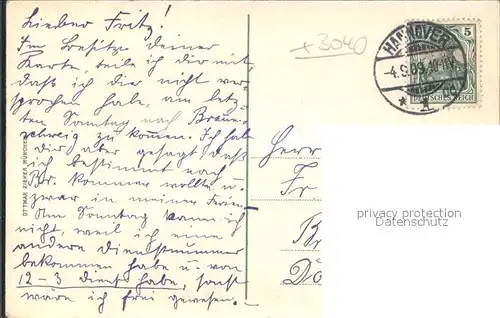 Lieber Fritz!
Im Besitze deiner
Karte, teile ich dir mit,
daß ich dir nicht ver-
sprochen habe, am letz-
ten Sonntag nach Braun-
schweig zu kommen. Ich hab
dir aber gesagt daß
ich bestimmt nach
Br. kommen wollte u.
zwar in meinen Ferien.
Am Sonntag kann ich
nicht, weil ich eine
andere Dienstnummer
bekommen habe u. von
12-3 Dienst habe, sonst
wäre ich frei gewesen.
OTTMAR ZIEHER, MÜNCHEN
+3040
HANNOVER
4.9.09.
5
DEUTSCHES REICH
Herr
Fr
Br
privacy protection
Datenschutz